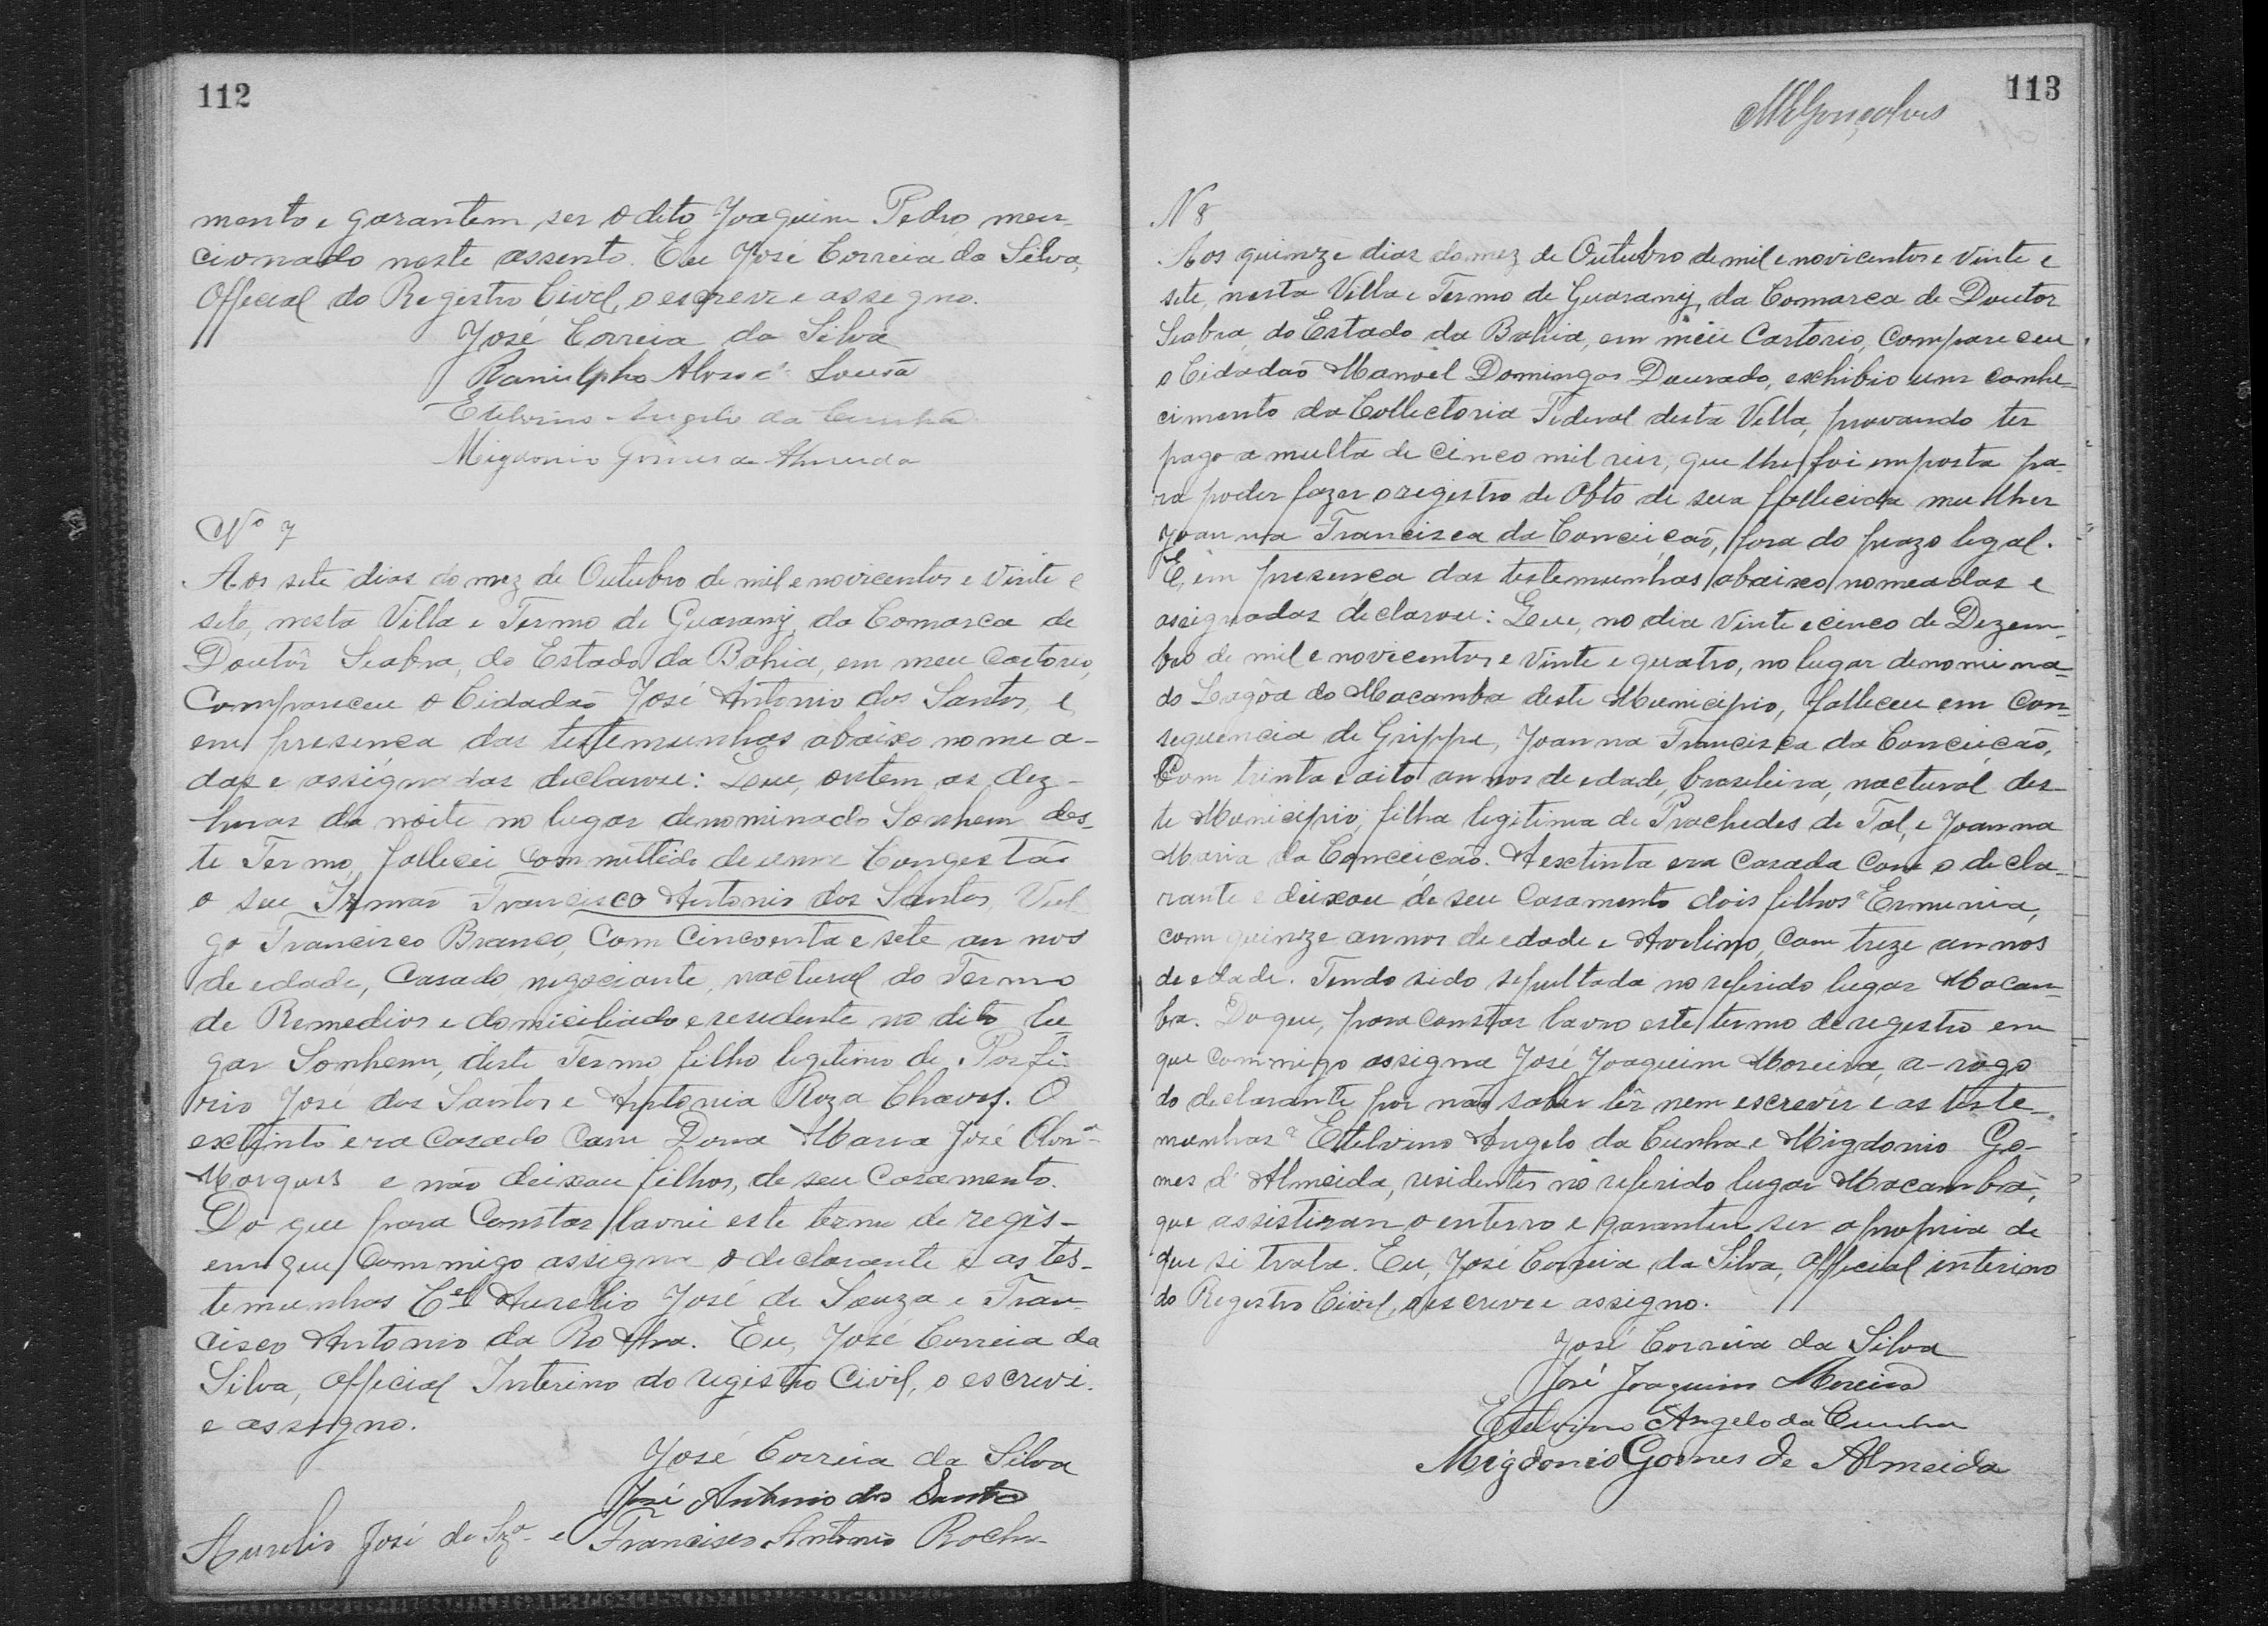 112
mento e garantem ser o dito Joaquim Pedro men-
cionado neste assento. Eu José Correia da Silva,
Official do Registro Civil, o escreve e assigno.
José Correia da Silva
Ranulpho Alves de Sousa
Etelvino Angelo da Cunha
Migdonio Gomes de Almeida
Nº 7
Aos sete dias do mez de Outubro de mil e novicentos e vinte e
sete, nesta Villa e Termo de Guarany, da Comarca de
Doutor Seabra, do Estado da Bahia, em meu Cartorio,
Compareceu o Cidadão José Antonio dos Santos, e
em presença das testemunhas abaixo nomea-
das e assignadas declarou: Que, ontem as dez
horas da noite no lugar denominado Sonhem des-
te Termo, falleceu committido de uma Congestão
o seu Irmão Francisco Antonio dos Santos, Vul
go Francisco Branco, Com Cincoenta e sete annos
de edade, Casado, negociante, nactural do Termo
de Remedios e domiciliado e resedente no dito lu-
gar Sonhem, deste Termo, filho legitimo de Porfi-
rio José dos Santos e Antonia Roza Chaves. O
exctinto era Casado Com Dona Maria José
Marques e não deixou filhos, de seu Casamento.
Do que para Constar lavrei este termo de regis-
em que Commigo assigna o declarante e as tes-
temunhas Cel Aurelio José de Souza e Fran-
cisco Antonio da Rocha. Eu, José Correia da
Silva, Official Interino do registro Civil, o escrevi.
e assigno.
José Correia da Silva
José Antonio dos Santos
Aurelio José de Sza e Francisco Antonio Rocha
113
MGonçalves
N 8
Aos quinze dias do mez de Outubro de mil e novicentos e vinte e
sete, nesta Villa e Termo de Guarany, da Comarca de Doutor
Seabra, do Estado da Bahia, em meu Cartorio, Compareceu
o Cidadão Manoel Domingos Dourado, exhibio um conhe-
cimento da Collectoria Federal desta Villa, provando ter
pago a multa de cinco mil reis, que lhe foi emposta pa-
ra poder fazer o registro de Obto de sua fallecida mulher
Joanna Francisca da Conceicão, fora do prazo legal.
E, em presença das testemunhas abaixo nomeadas e
assignadas declarou: Que, no dia vinte e cinco de Dezem-
bro de mil e novicentos e vinte e quatro, no lugar denomina-
do Lagôa do Macamba deste Municipio, falleceu em con-
sequencia de Grippe, Joanna Francisca da Conceicão,
Com trinta e oito annos de edade, brasileira, nactural des-
te Municipio, filha legitima de Prachedes de Tal, e Joanna
Maria da Conceicão. A exctinta era Casada Com o decla-
rante e deixou de seu Casamento dois filhos Erminia,
com quinze annos de edade e Avelino, Com treze annos
de edade. Tendo sido sepultada no referido lugar Macam-
ba. Do que, para constar lavro este termo de registro em
que commigo assigna José Joaquim Moreira, a-rogo
do declarante por não saber lêr nem escrevêr e as teste-
munhas Ettelvino Angelo da Cunha e Migdonio Go-
mes d' Almeida, residentes no referido lugar Macamba,
que assistiram o enterro e garantem ser a propria de
que si trata. Eu, José Correia da Silva, Official interino
do Registro Civil, o escreve e assigno.
José Correia da Silva
José Joaquim Moreira
Etelvino Angelo da Cunha
Migdonio Gomes de Almeida